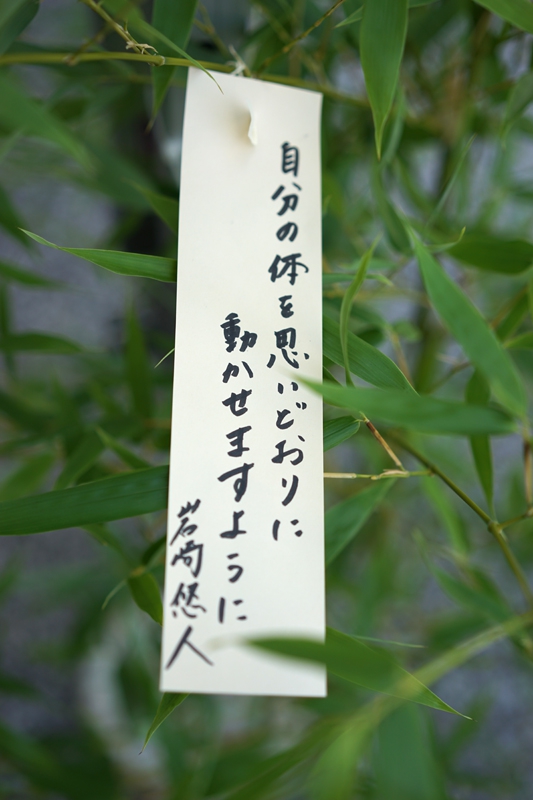 自分の体を思いどおりに
動かせますように
岩崎悠人